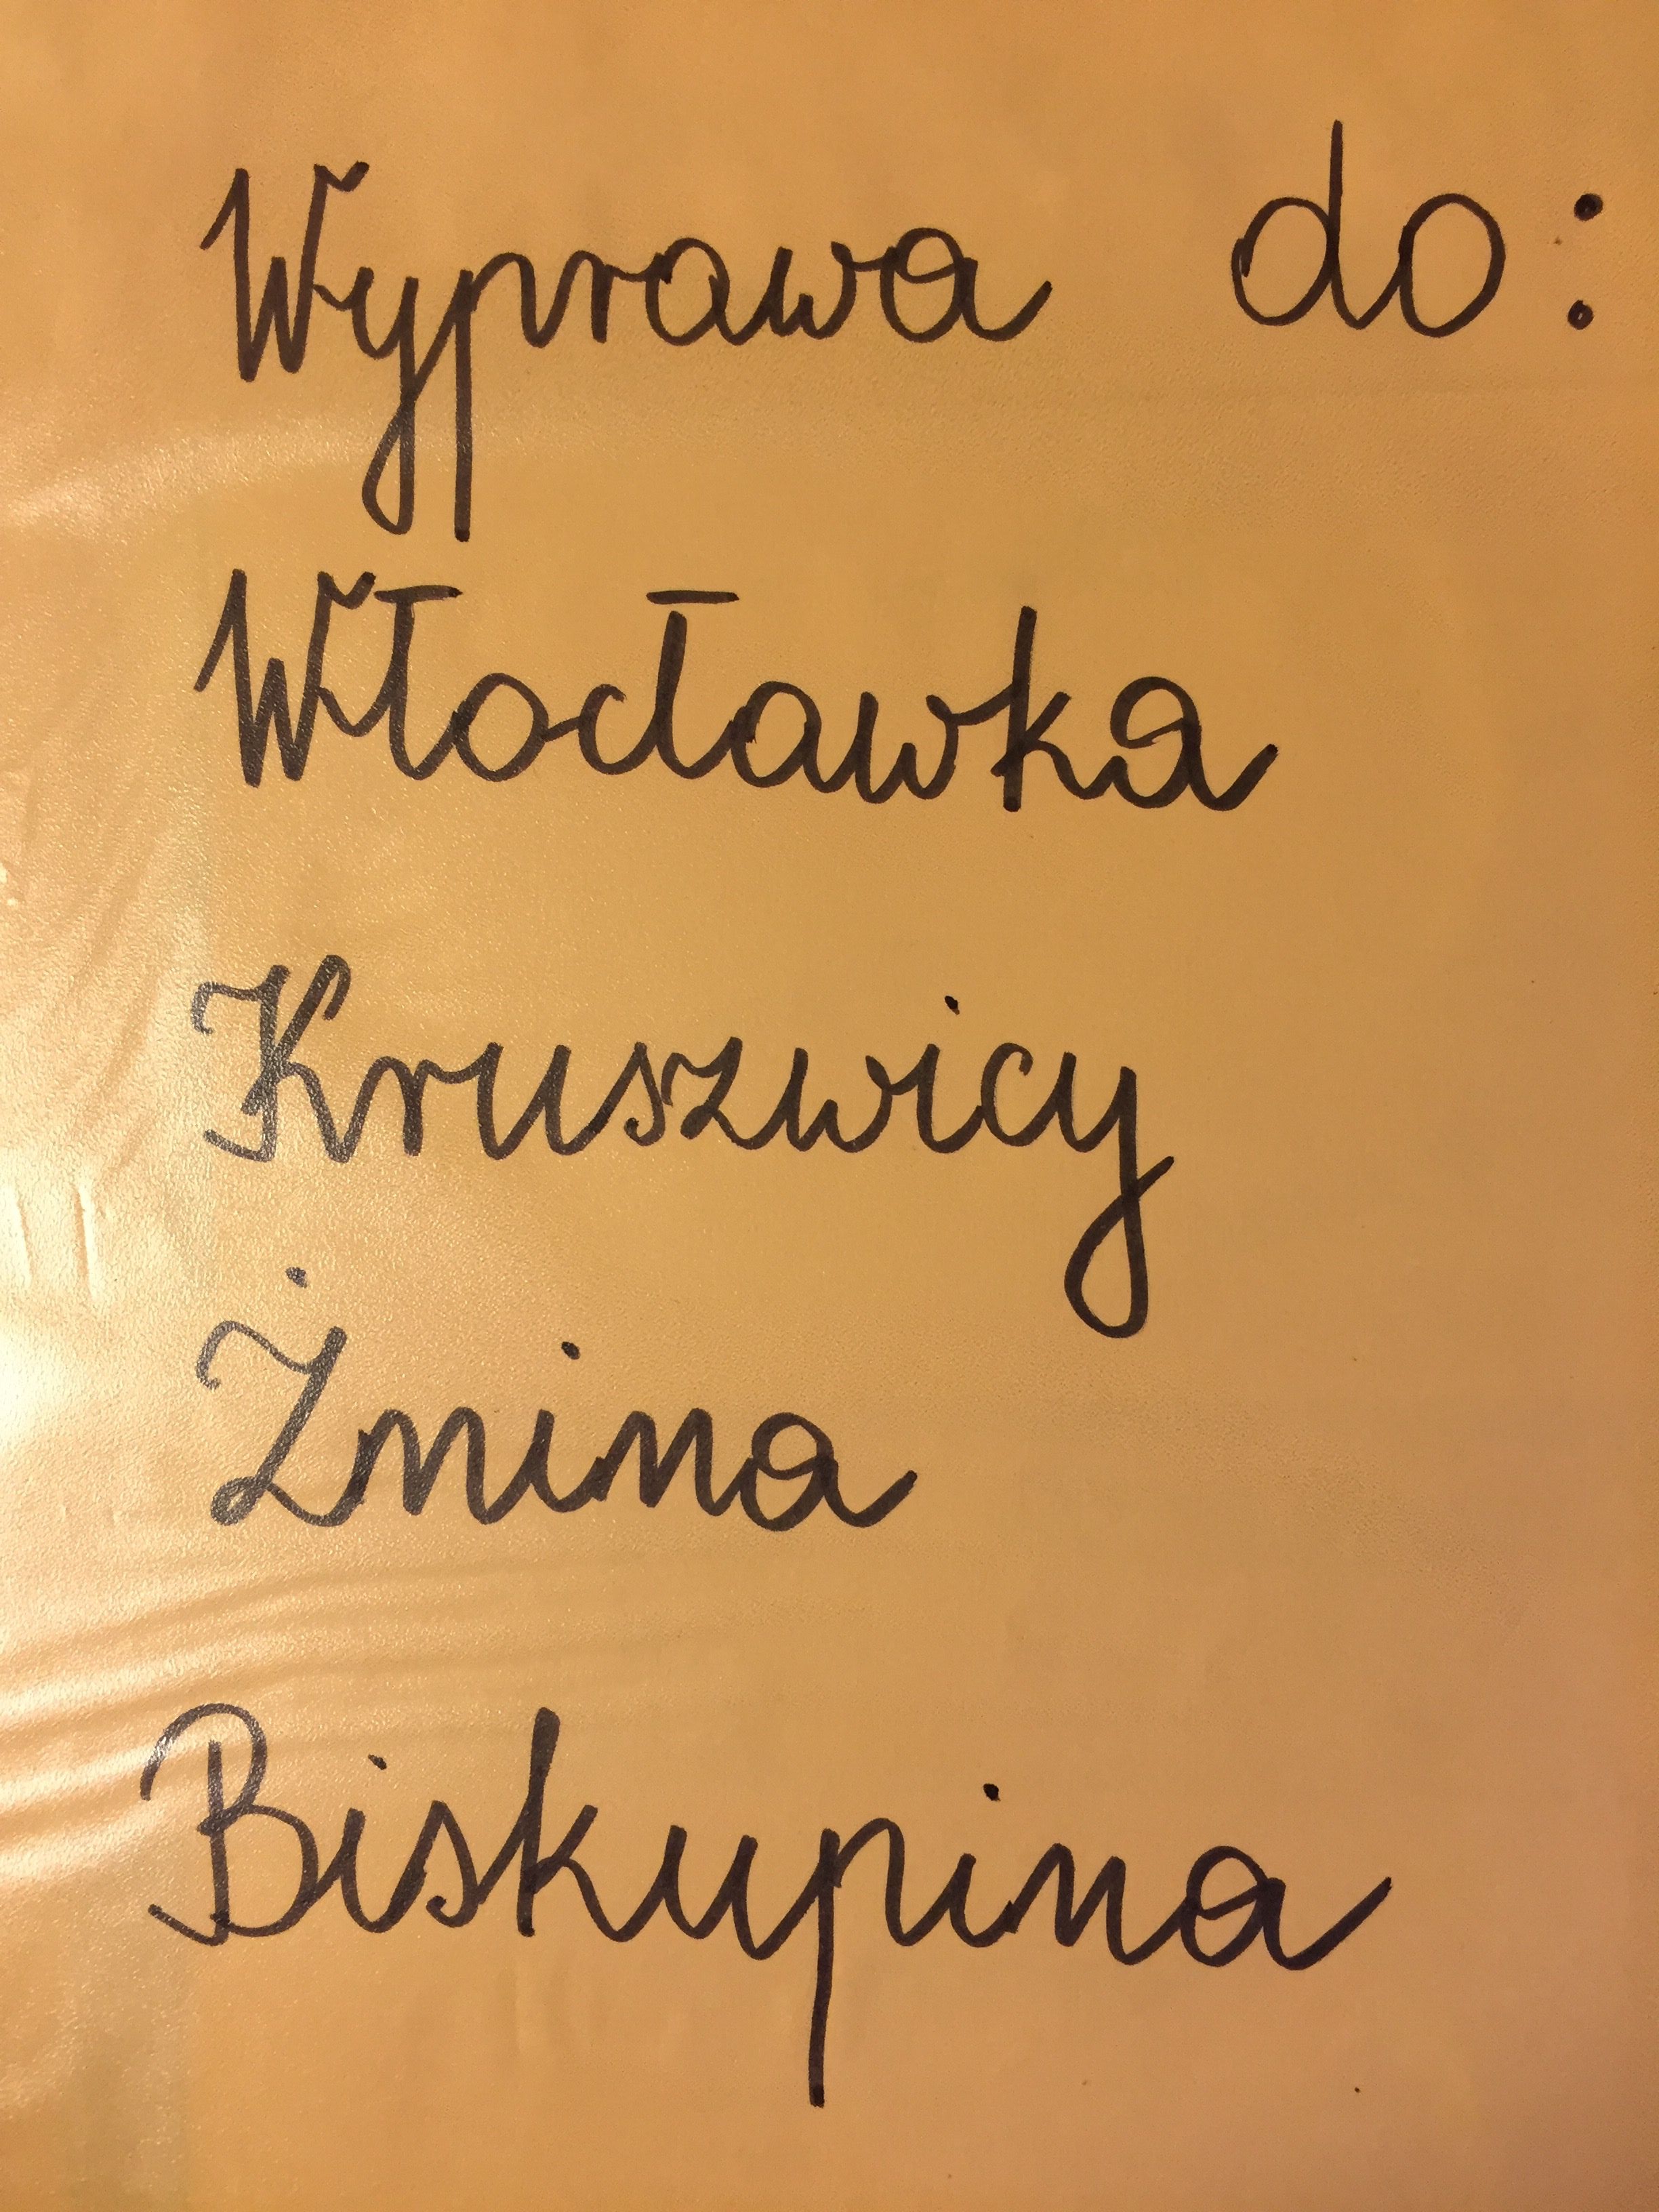 Wyprawa do:
Włocławka
Kruszwicy
Żnina
Biskupina